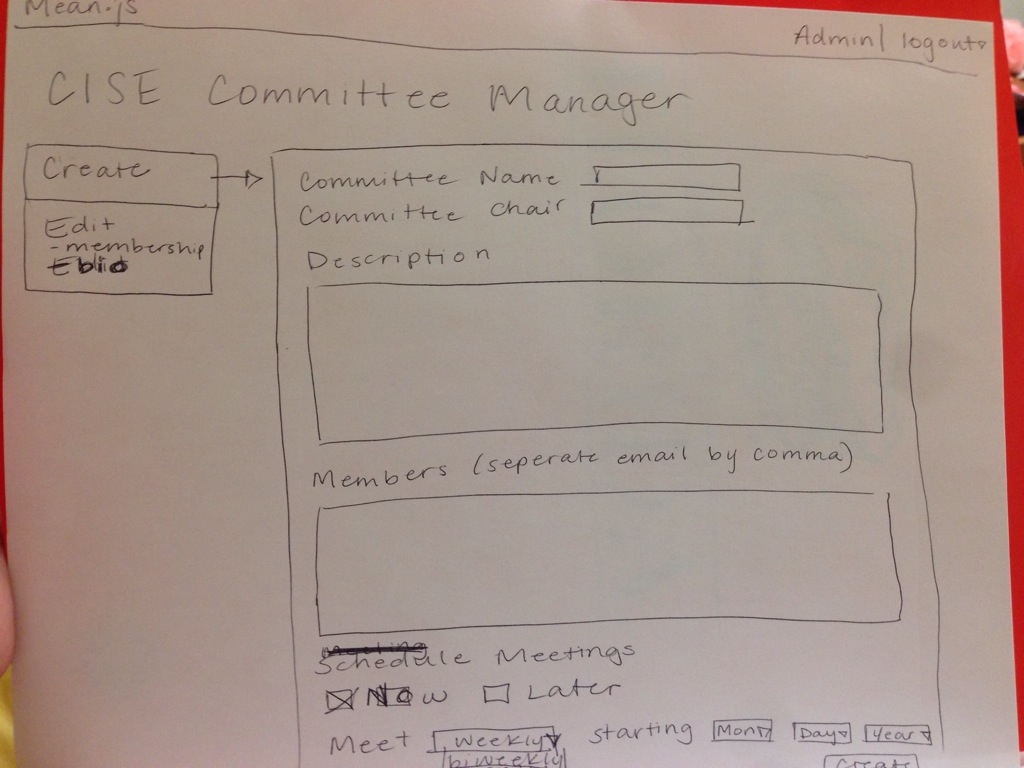 Mean.js
Admin| logout
CISE Committee Manager
Create
Edit
- membership
Committee Name
Committee Chair
Description
Members (seperate email by comma)
Schedule Meetings
Now Later
Meet weekly starting Mon Day Year
biweekly
Create